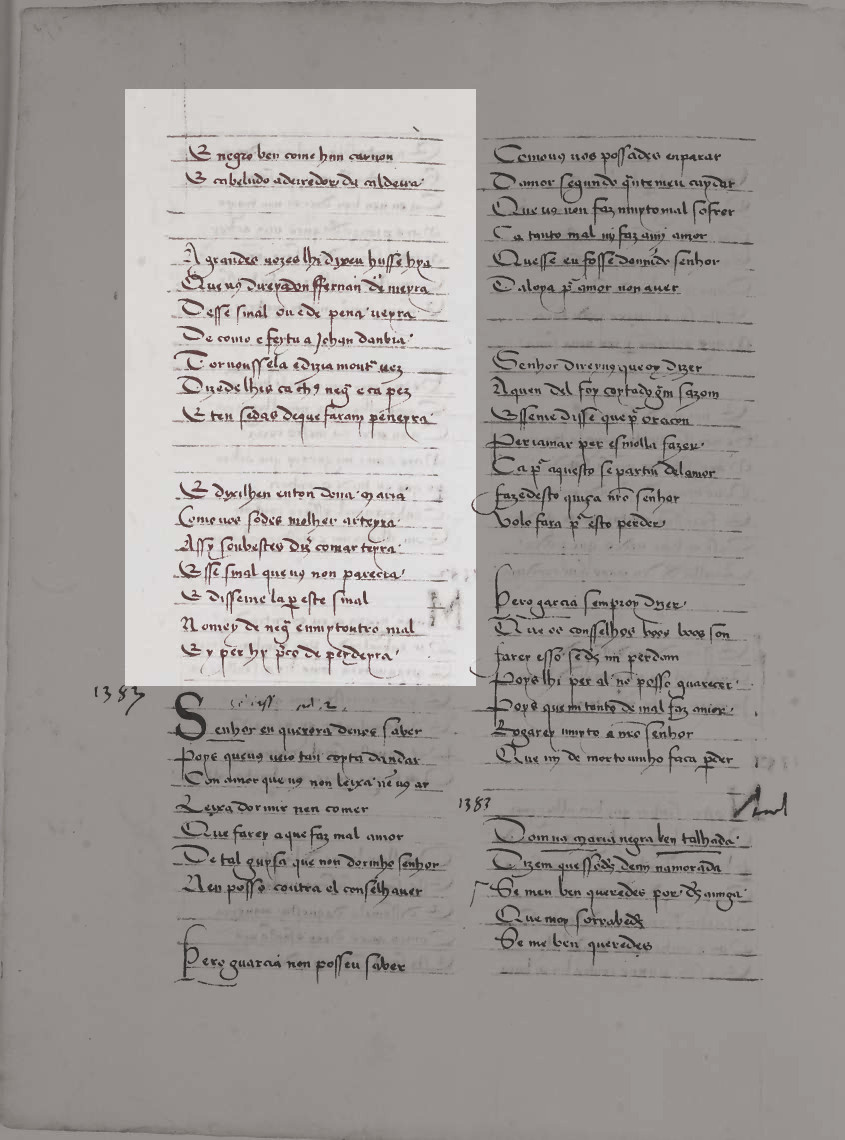 E negro ben come hun caruon
E cabeludo aderredor da caldeira
A grandes uozes lhi dixeu husse hya
Que uꝯ direy a don ffernan de meyra
Desse sinal ou é de pena ueyra
De como e feytu a Johan danbia
Tornoussela e dizia mout uez
Dizede lhis ca chꝯ neg e ca pez
E ten sedas de que faram peneyra
E dixilhen enton dona Maria
Como uos sodes molher arteyra
Assy soubestes diz comarteyra
Esse sinal que uꝯ non parecia
E disseme la per este sinal
Nomey de neg e muytoutro mal
Ey per hy preço de perdeyra
1383
Senhor eu querora denos saber
Poys queuꝯ ueio tan coyta dandar
Con amor que uꝯ non leixa nē uꝯ ar
Leixa dormir nen comer
Que farey a que faz mal amor
De tal guysa que non dormho senhor
Nen posso contra el conselhauer
Pero guarcia non posseu saber
Comouꝯ uos possades enparar
Damor segundo quante meu cuydar
Que uꝯ non faz muyto mal sofrer
Ca tanto mal mi faz a mī amor
Quesse eu fosse do mundo senhor
Daloya por amor non auer
Senhor direyuꝯ que oy dizer
A quen del foy coytado gram sazom
Esseme disse que por oracon
Per iaiuar per esmolla fazer
Ca por aquesto se partiu delamor
fazedesto quiça nro senhor
Volo fara por esto perder
Pero garcia semproy dizer
Que os consselhos boos boos son
farey esso se ds mi perdom
Poys lhi per al nō posso guarecer
Poys que mi tanto de mal faz amor
Rogarey muyto a nro senhor
Que mi de mortounho faca perder
1383
Domna maria negra ben talhada
Dizem quessodes demi namorada
Se men ben queredes por ds amiga
Que moy sorrabedes
Se me ben queredes